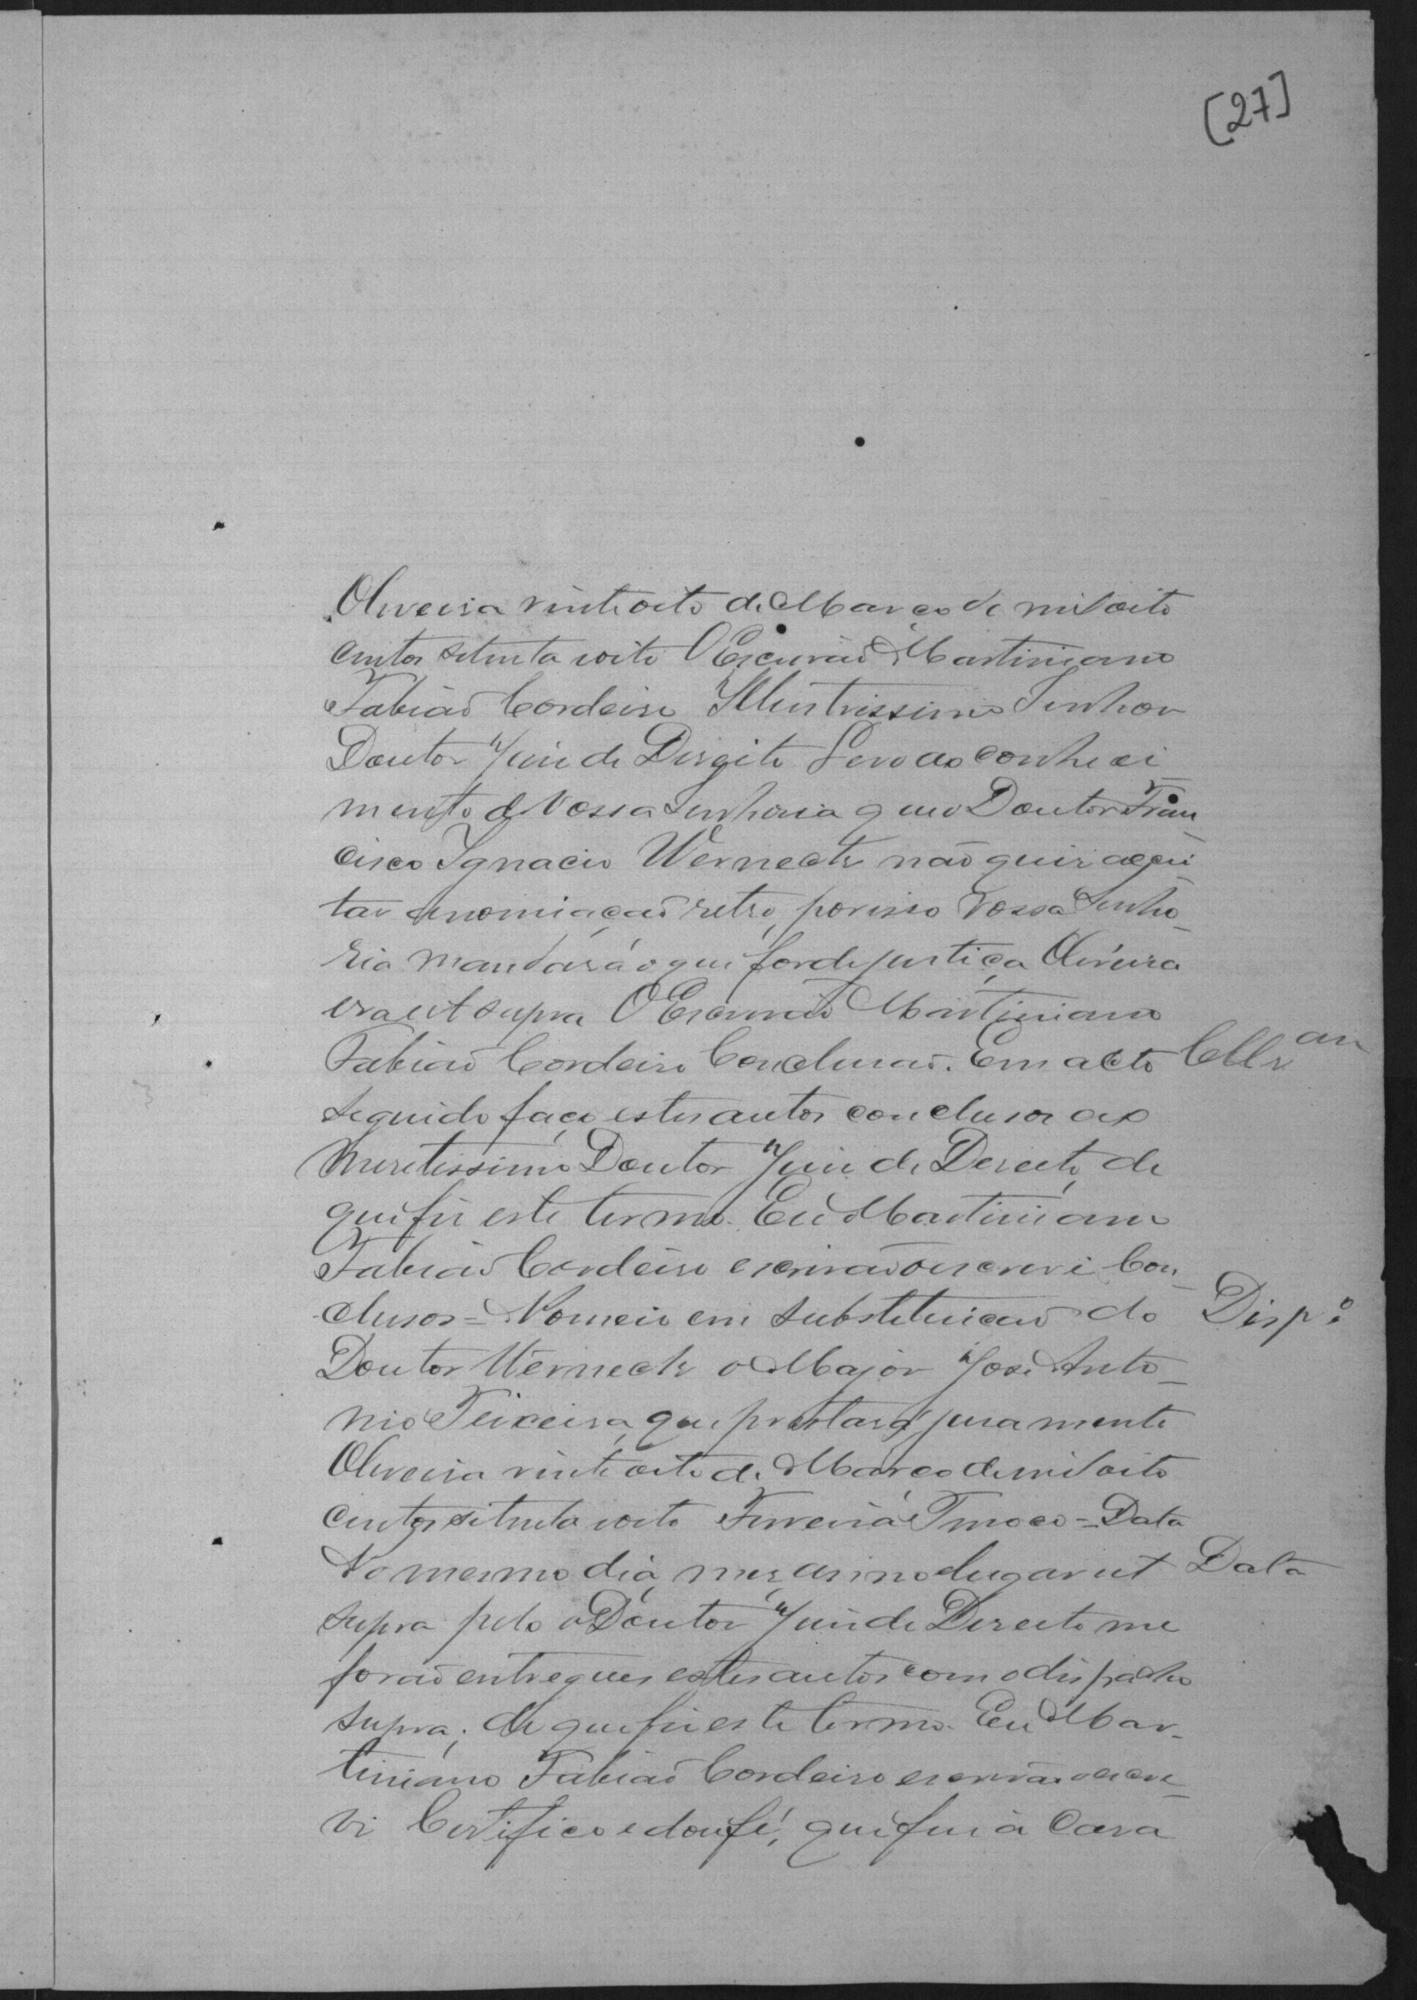 [27]
Oliveira vinte oito de Março de mil oito
centos setenta i oito O Escrivaõ Martiniano
Fabiaõ Cordeiro Illustrissimo Senhor
Doutor Juis de Dirgito Levo ao conheci
mento de Vossa Senhoria que o Doutor Fran
cisco Ignacio Werneck naõ quiz accei
tar a nomiaçaõ retro, por isso Vossa Senho
ria mandará o que for de justiça Oliveira
era ut supra O Escrivaõ Martiniano
Fabiaõ Cordeiro Conclusaõ. Em acto
Cllsan
seguido faço estes autos conclusos ao
Meretissimo Doutor Juis de Dereito, de
que fis este termo. Eu Martiniano
Fabiaõ Cordeiro escrivaõ o escrevi Con
clusos = Nomeio em substituicaõ do
Disp.o
Doutor Werneck o Major José Anto
nio Teixeira, que prestará juramento
Oliveira vinte oito de Março de mil oito
centos setenta i oito Ferreira Tinoco = Data
No mesmo dia, mes, anno e lugar ut
Data
supra pelo o Doutor Juis de Dereito me
foraõ entregues estes autos com o dispacho
supra; de que fis este termo. Eu Mar-
tiniano Fabiaõ Cordeiro escrivaõ o escre
vi Certifico e dou fé, que fui á Casa